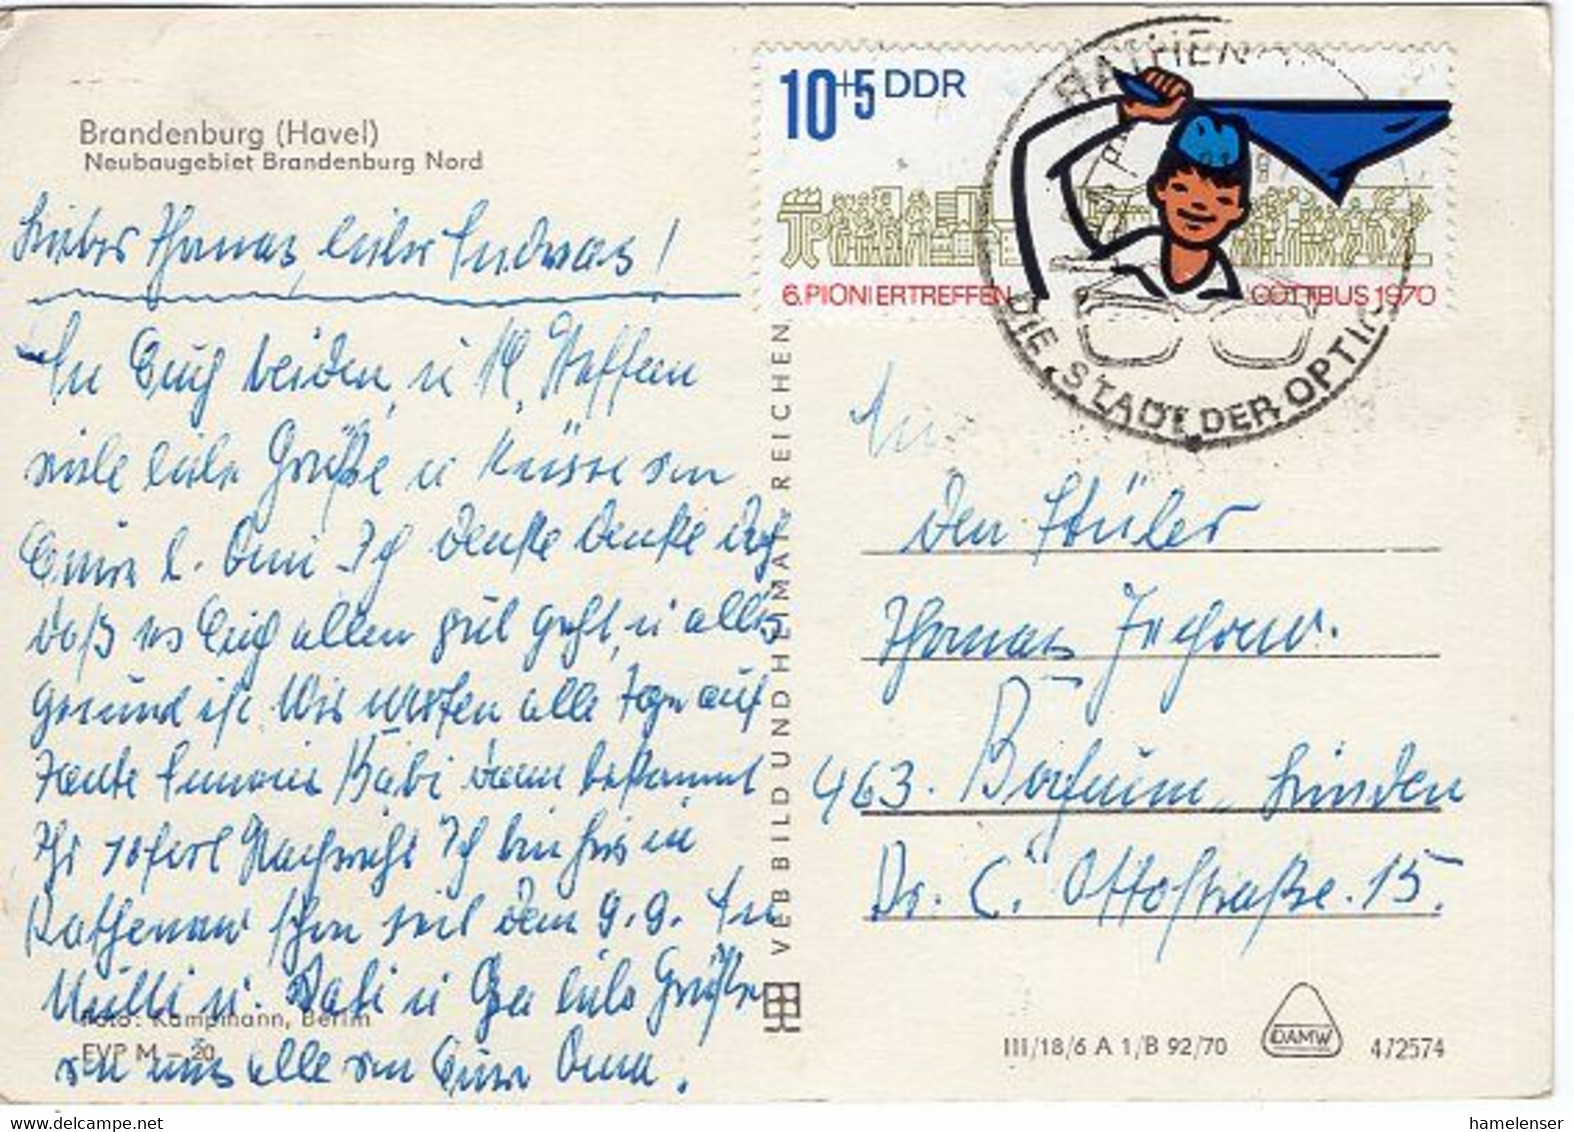 Brandenburg (Havel)
Neubaugebiet Brandenburg Nord
Lieber Thomas, lieber Andreas!
Euch beiden, u
viele liebe Grüße u Küsse von
Eurer l. Omi Ich denke denke doch
daß es Euch allen gut geht, u alles
gesund ist. Wir warten alle Tage auf
Heute dann bekommt
Ihr sofort Nachricht Ich bin hier in
Rathenow schon seit dem 9.9. An
Mutti u. Vati u liebe Grüße
Foto: Kampmann, Berlin
EVP M – 20
von uns alle von Eurer Oma.
VEB BILD UND HEIMAT REICHENBACH
10+5 DDR
6. PIONIERTREFFEN COTTBUS 1970
RATHENOW
DIE STADT DER OPTIK
An
den Schüler
Thomas
463. Bochum-Linden
Dr. C. Ottostraße. 15.
III/18/6 A 1/B 92/70
DAMW
4/2574
hamelenser
www.delcampe.net